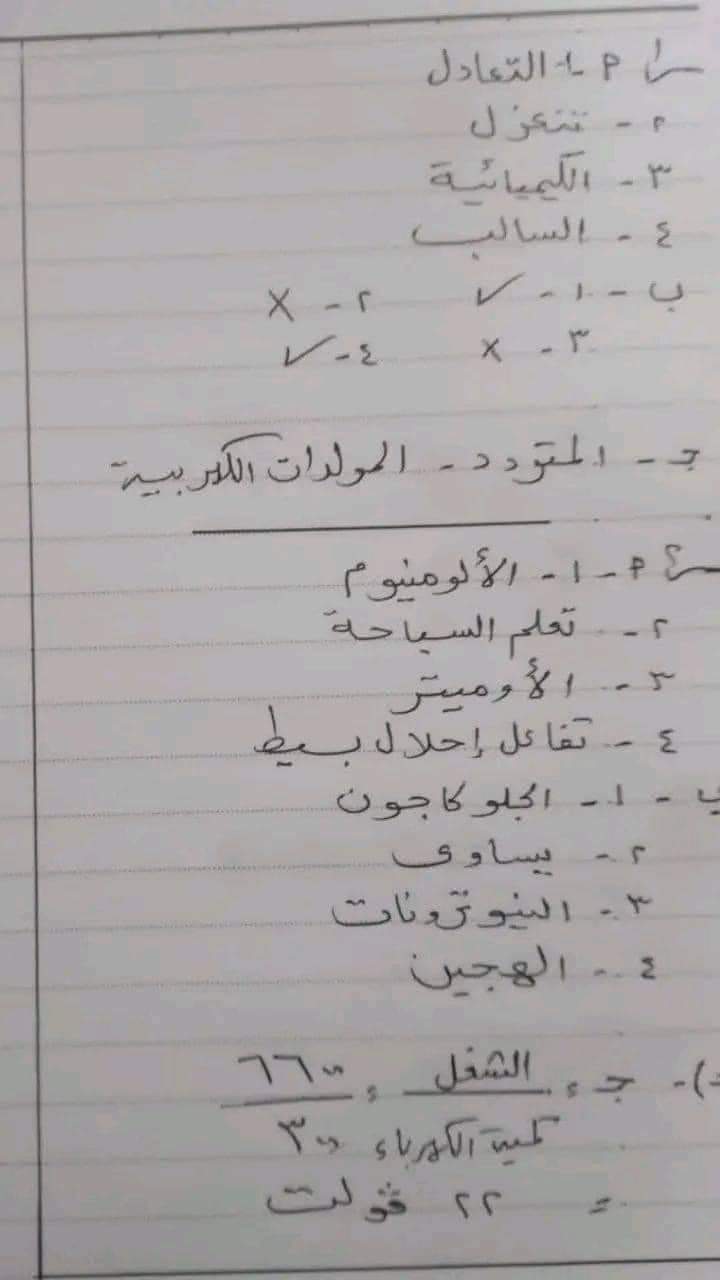 س١ P ١- التعادل
٢ - تنعزل
٣ - الكيميائية
٤ - السالب
ب - ١ - ✓ ٢ - X
٣ - X ٤ - ✓
جـ - المتردد - المولدات الكهربية
س٢ P - ١ - الألومنيوم
٢ - تعلم السباحة
٣ - الأوميتر
٤ - تفاعل إحلال بسيط
ب - ١ - الجلوكاجون
٢ - يساوى
٣ - النيوترونات
٤ - الهجين
جـ = الشغل = ٦٦٠٠
كمية الكهرباء ٣٠٠
= ٢٢ ڤولت